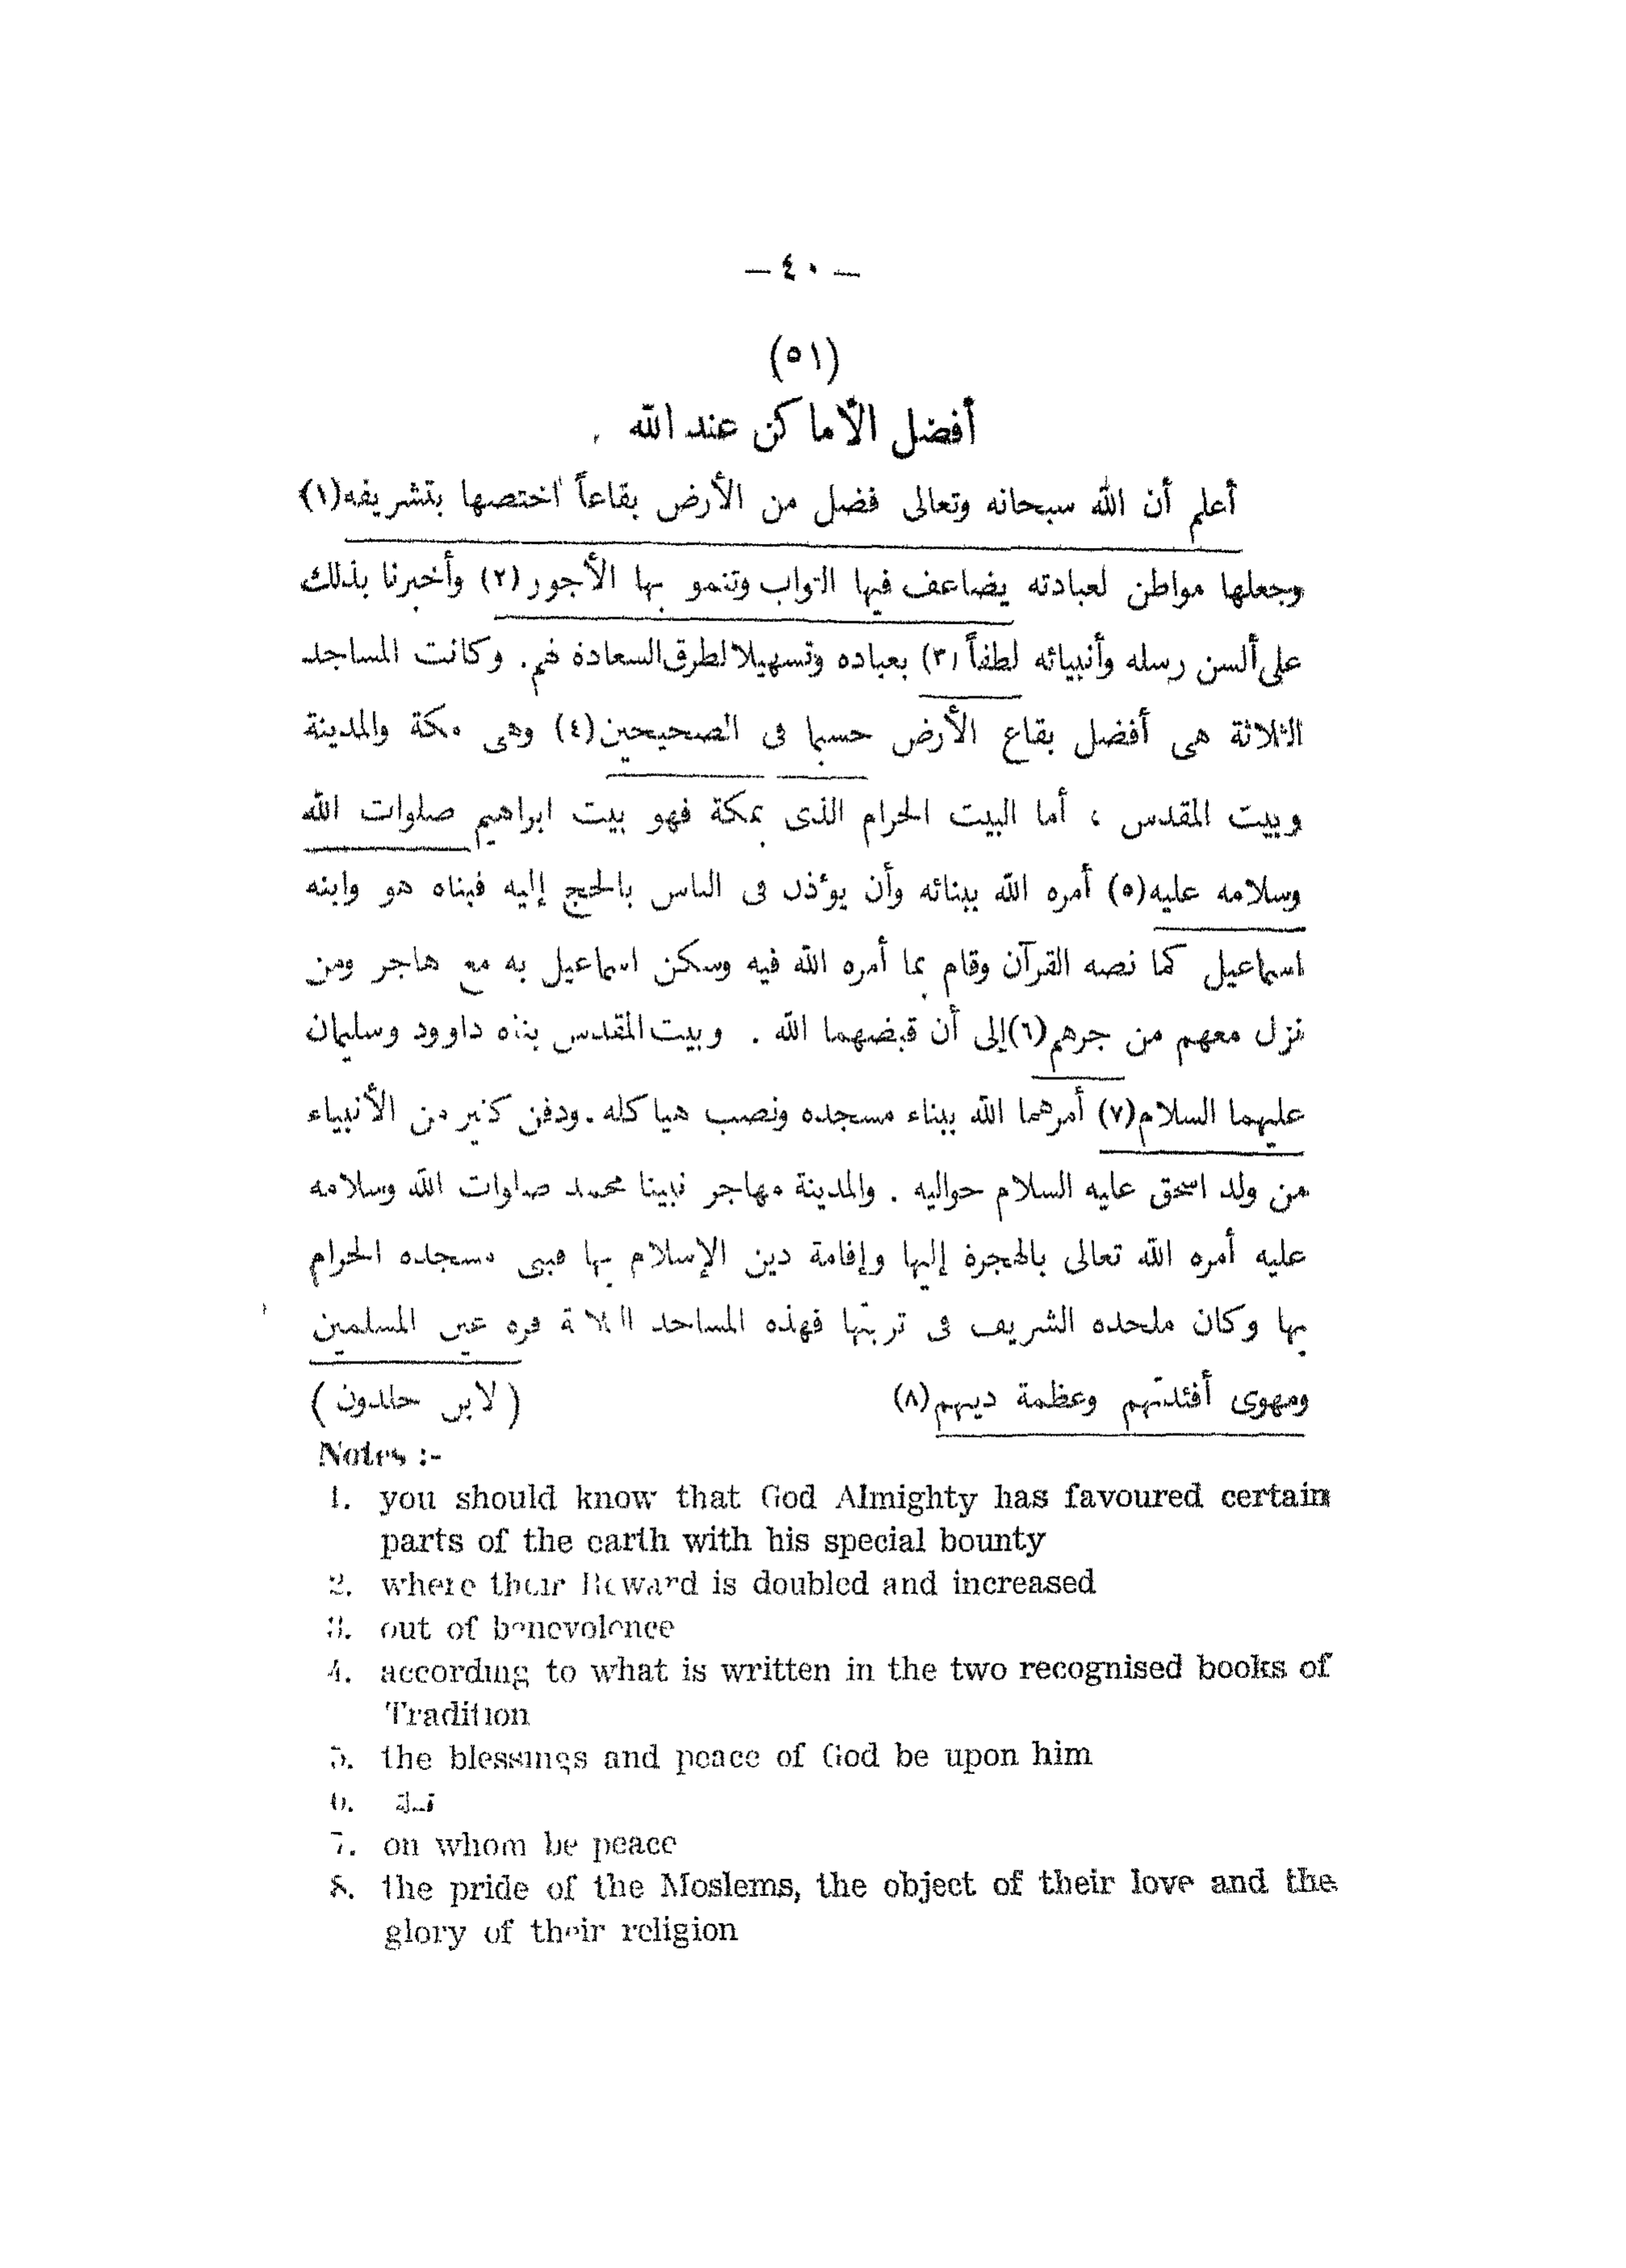 — ٤٠ —
(٥١)
أفضل الأماكن عند الله
أعلم أن الله سبحانه وتعالى فضل من الأرض بقاعاً اختصها بتشريفه(١)
وجعلها مواطن لعبادته يضاعف فيها الثواب وتنمو بها الأجور(٢) وأخبرنا بذلك
على ألسن رسله وأنبيائه لطفاً(٣) بعباده وتسهيلا لطرق السعادة لهم. وكانت المساجد
الثلاثة هى أفضل بقاع الأرض حسبما فى الصحيحين(٤) وهى مكة والمدينة
وبيت المقدس ، أما البيت الحرام الذى بمكة فهو بيت ابراهيم صلوات الله
وسلامه عليه(٥) أمره الله ببنائه وأن يؤذن فى الناس بالحج إليه فبناه هو وابنه
اسماعيل كما نصه القرآن وقام بما أمره الله فيه وسكن اسماعيل به مع هاجر ومن
نزل معهم من جرهم(٦) إلى أن قبضهما الله . وبيت المقدس بناه داوود وسليمان
عليهما السلام(٧) أمرهما الله ببناء مسجده ونصب هياكله. ودفن كثير من الأنبياء
من ولد اسحق عليه السلام حواليه . والمدينة مهاجر نبينا محمد صلوات الله وسلامه
عليه أمره الله تعالى بالهجرة إليها وإقامة دين الإسلام بها فبنى مسجده الحرام
بها وكان ملحده الشريف فى تربتها فهذه المساجد الثلاثة قرة عين المسلمين
ومهوى أفئدتهم وعظمة دينهم(٨) (لابن خلدون)
Notes :-
1. you should know that God Almighty has favoured certain
parts of the earth with his special bounty
2. where their Reward is doubled and increased
3. out of benevolence
4. according to what is written in the two recognised books of
Tradition
5. the blessings and peace of God be upon him
6.
7. on whom be peace
8. the pride of the Moslems, the object of their love and the
glory of their religion